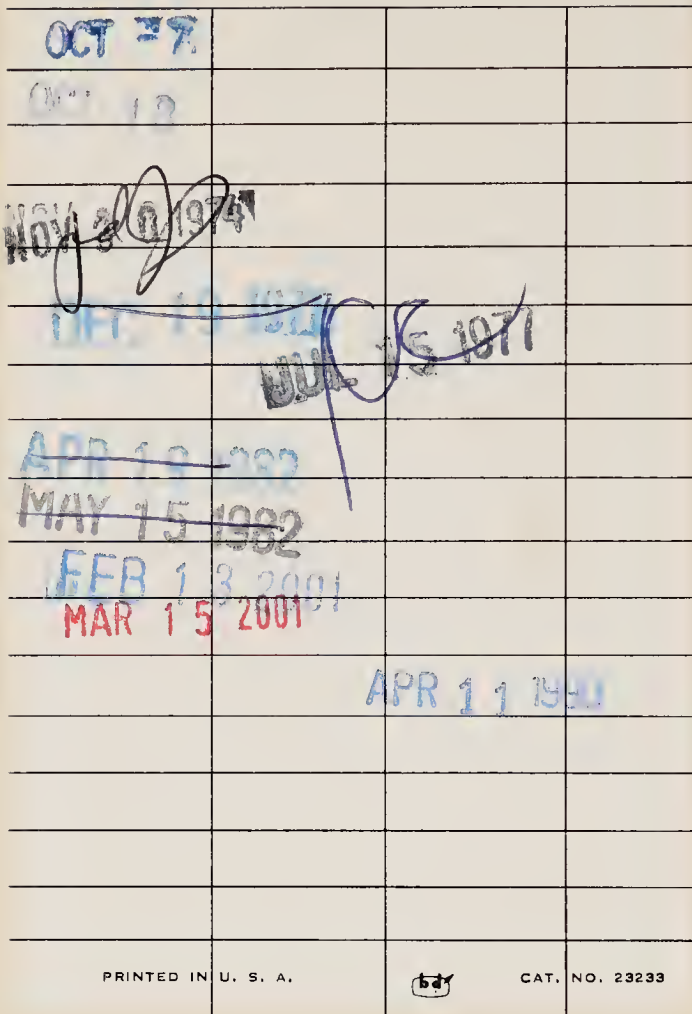 OCT -7
OCT 13
NOV 30 1974
DEC 19
JUL 15 1977
APR 1 1982
MAY 15 1982
FEB 13 2001
MAR 15 2001
APR 11
PRINTED IN U. S. A. bd CAT. NO. 23233